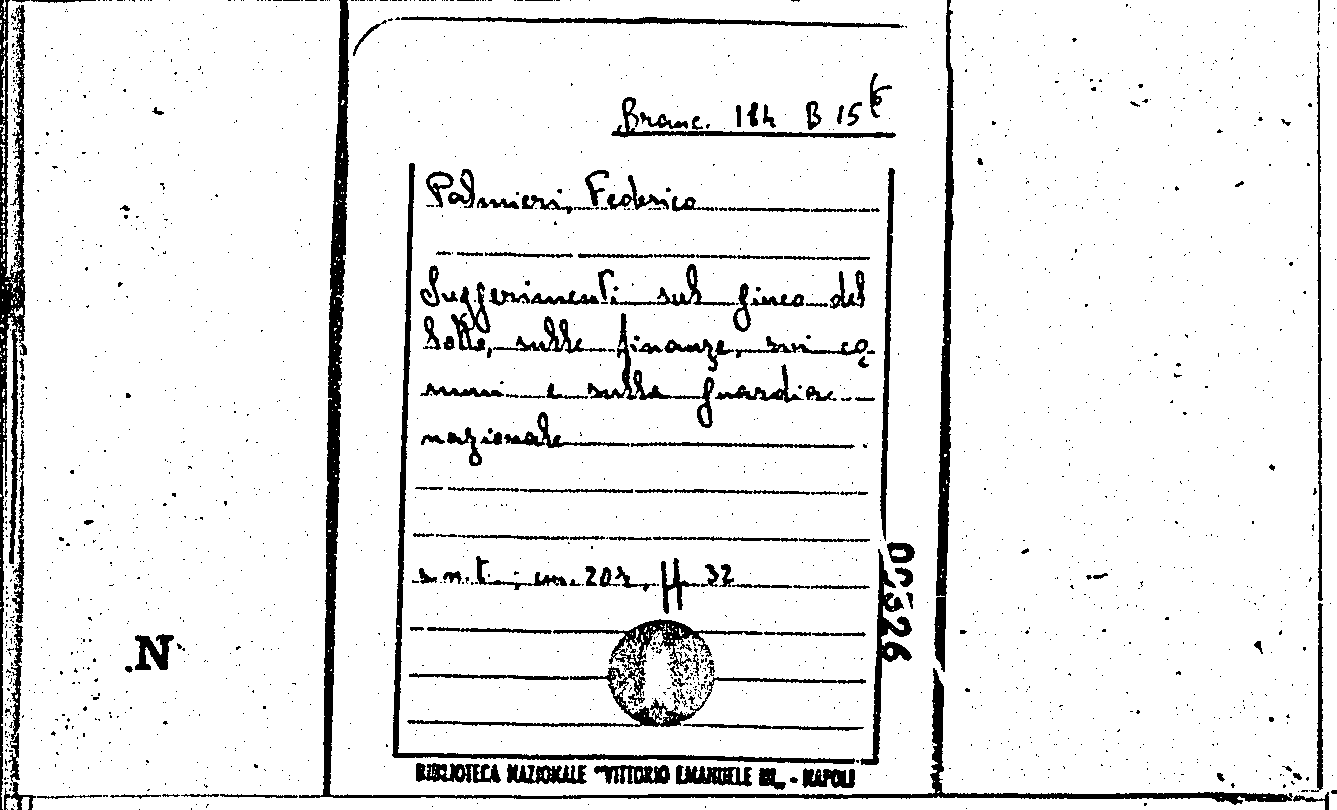 Branc. 184 B 15 6
Palmieri, Federico
Suggerimenti sul giuoco del
lotto, sulle finanze, sui co
muni e sulla guardia
nazionale
s.n.t. ; cm. 20½, ff. 32
00326
N
BIBLIOTECA NAZIONALE "VITTORIO EMANUELE III„ - NAPOLI